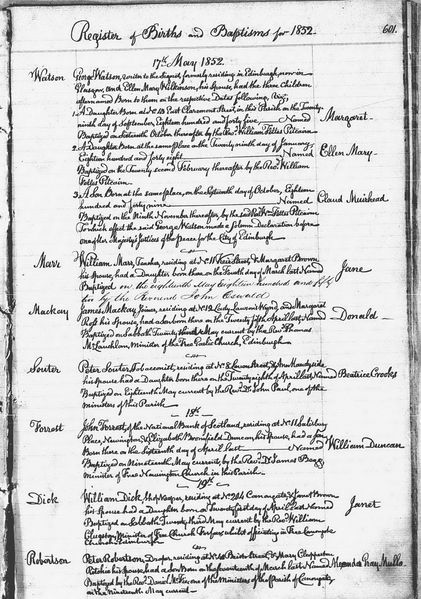 601.
Register of Births and Baptisms for 1852.
17th. May 1852.
Watson George Watson, writer to the Signet, formerly residing in Edinburgh, now in
Glasgow, and Ellen Mary Wilkinson, his Spouse, had the three Children
afternamed Born to them on the respective Dates following, viz,
1. A Daughter Born at No. 10 East Claremont Street, in this Parish on the Twenty
ninth day of September, Eighteen hundred and forty five, Named Margaret.
Baptized on Sixteenth October thereafter by the Revd. William Fettes Pitcairn
2. A Daughter Born at the same place on the Twenty ninth day of January,
Eighteen hundred and forty eight Named Ellen Mary.
Baptized on the Twenty second February thereafter by the Revd. William
Fettes Pitcairn.
3. A Son Born at the same place, on the Sixteenth day of October, Eighteen
hundred and forty nine Named Claud Muirhead
Baptized on the Ninth November thereafter, by the said Revd. Wm. Fettes Pitcairn
To which effect the said George Watson made a Solemn Declaration before
one of Her Majesty's Justices of the Peace for the City of Edinburgh
Marr William Marr, residing at Street, & Margaret Brown,
his Spouse, had a Daughter born there on the Fourth day of March last Named Jane
Baptized on the eighteenth May eighteen hundred and fifty
by the Reverend John Oswald
Mackay James Mackay, Joiner, residing at No. 12 Lady Lawson's Wynd, and Margaret
Ross his Spouse, had a Son born there on the Twenty fifth April last Named Donald.
Baptized on Sabbath May current by the Revd. Thomas
McLauchlan, Minister of the Free Gaelic Church, Edinburgh.
Souter Peter Souter, Tobacconist, residing at No. 8 Street, & Ann Moodyside
his Spouse had a Daughter born there on the Twenty eighth of April last Named Beatrice Crooks
Baptized on Eighteenth May current by the Revd. Dr. John Paul, one of the
ministers of this Parish.
18th.
Forrest John Forrest, of the National Bank of Scotland, residing at No. 11 Salisbury
Place, Newington, & Elizabeth Bromfield Duncan, his Spouse, had a Son
Born there on the Sixteenth day of April last Named William Duncan
Baptized on Nineteenth May current, by the Revd. Dr. James Begg
Minister of Free Newington Church in this Parish.
19th.
Dick William Dick, Shopkeeper, residing at No. 246 Canongate, & Janet Brown
his Spouse, had a Daughter born on Twenty first day of April last Named Janet
Baptized on Sabbath Twenty third May current by the Revd. William
Minister of Free Church Forfar, whilst officiating in Free Canongate
Church Edinburgh
Robertson Peter Robertson, Draper, residing at No. Bristo Street, & Mary Clapperton
Ritchie his Spouse, had a Son Born on the Seventeenth of March last Named Alexander Gray Mullo.
Baptized by the Revd. Daniel one of the Ministers of the Parish of Canongate,
on the Nineteenth May current